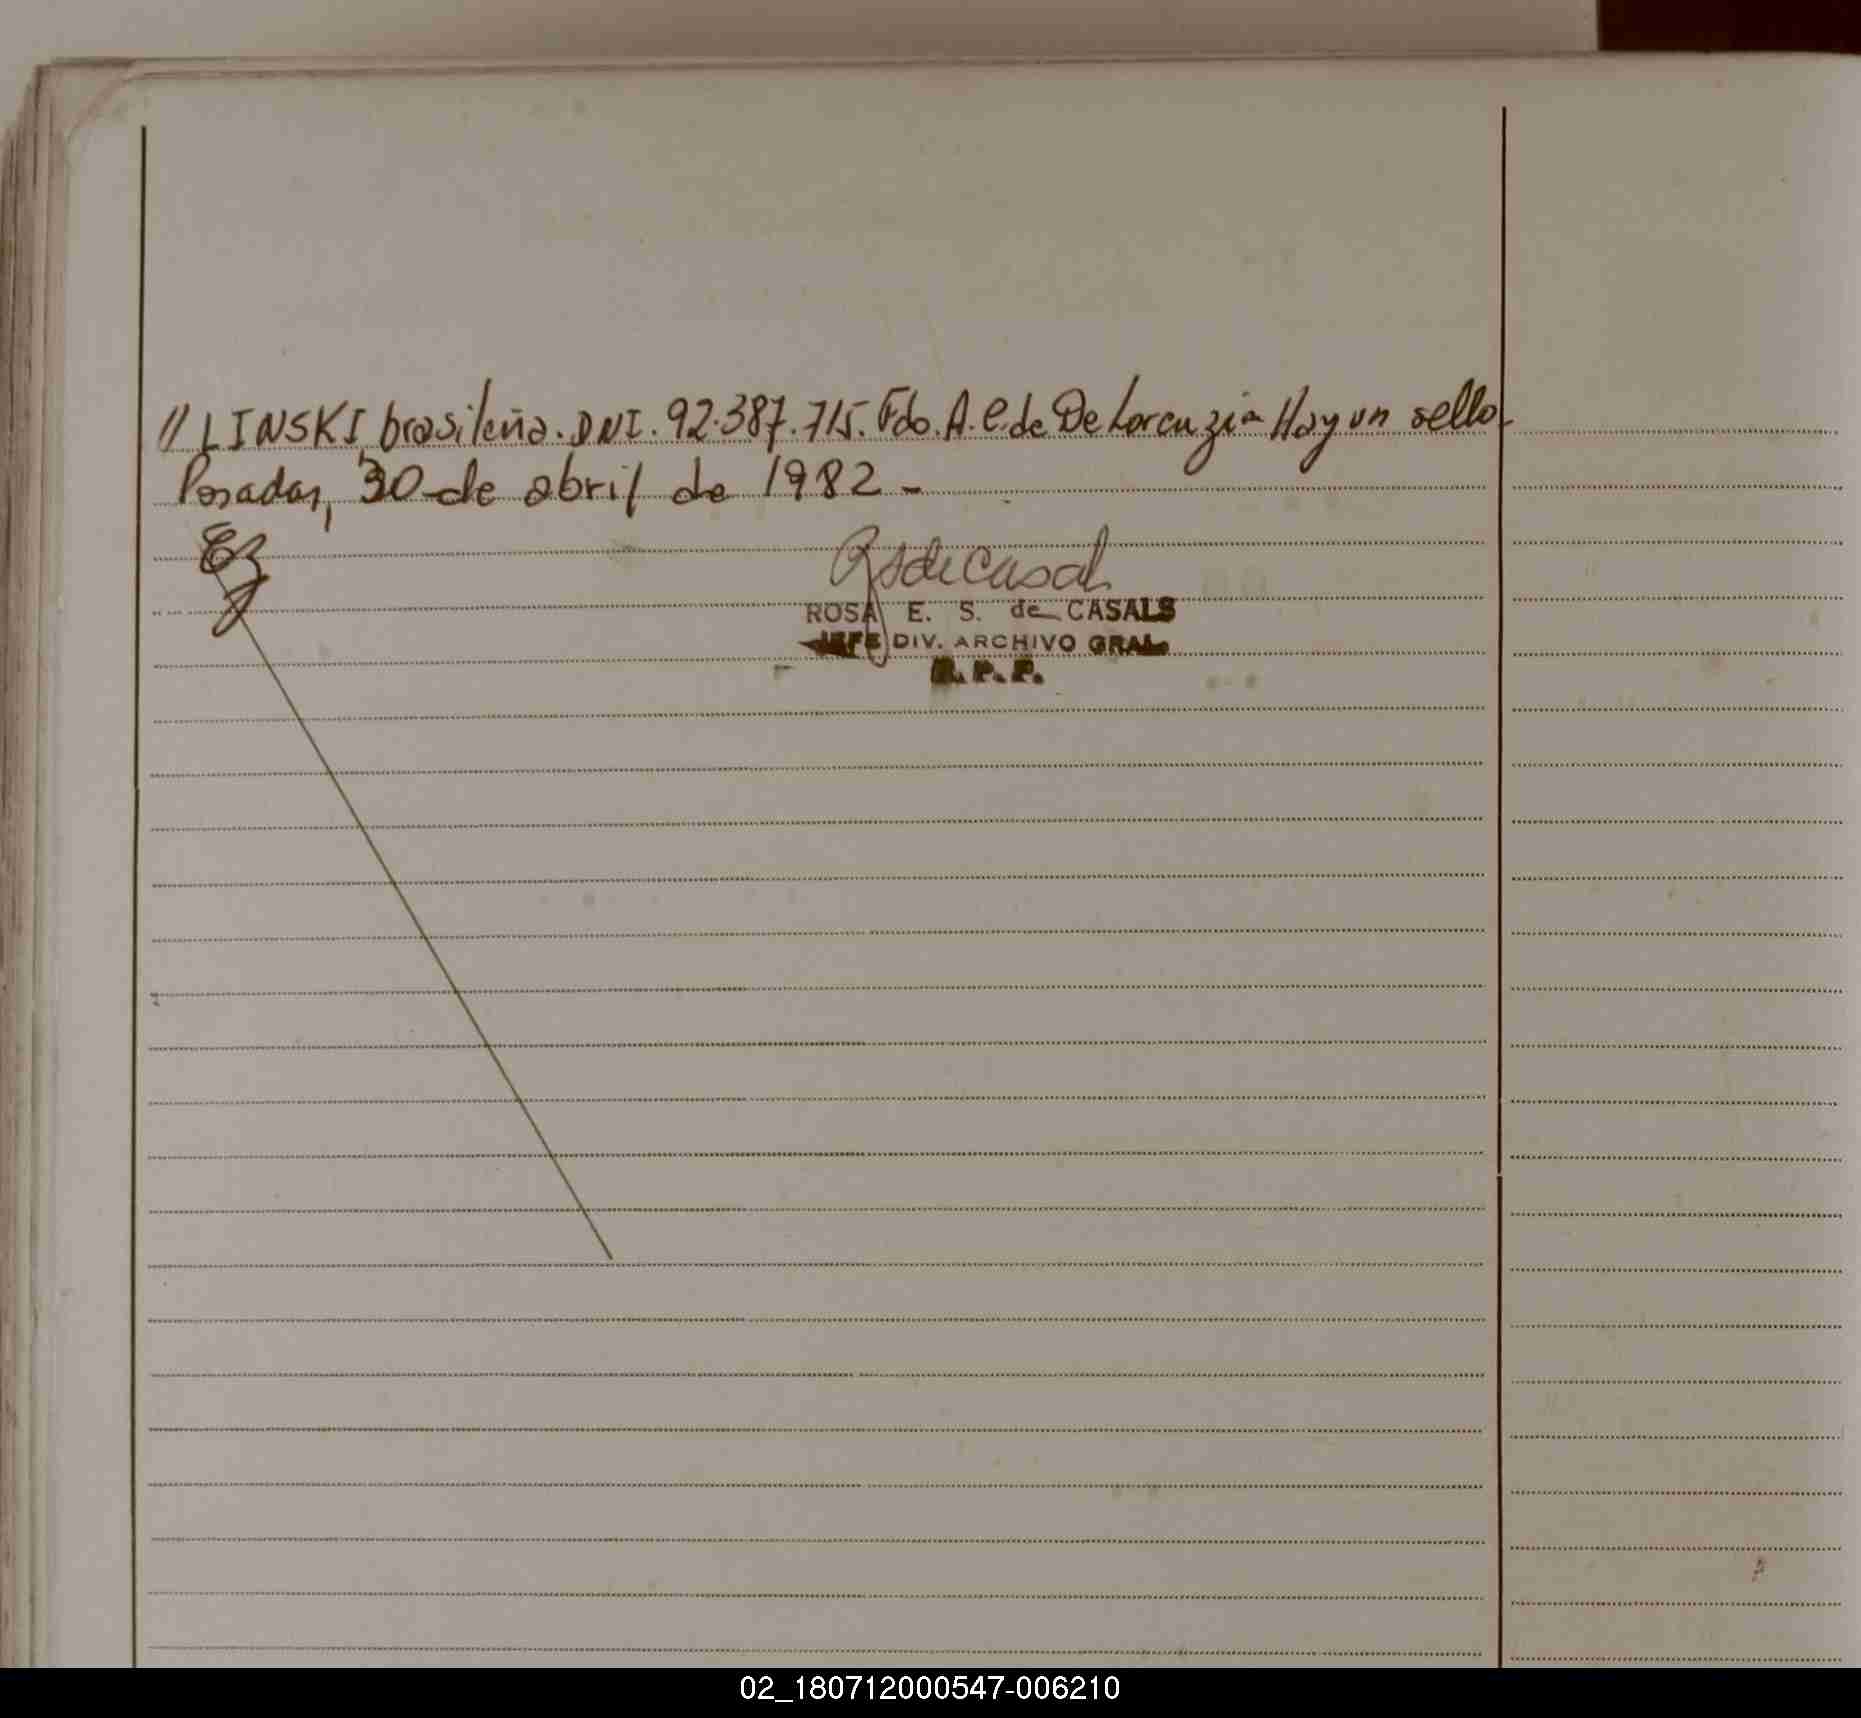 // LINSKI, brasileña. DNI. 92.387.715. Fdo. A. C. de De Lorenzi - Hay un sello.
Posadas, 30 de abril de 1982 -
RSdeCasals
ROSA E. S. de CASALS
JEFE DIV. ARCHIVO GRAL.
R. P. P.
02_180712000547-006210